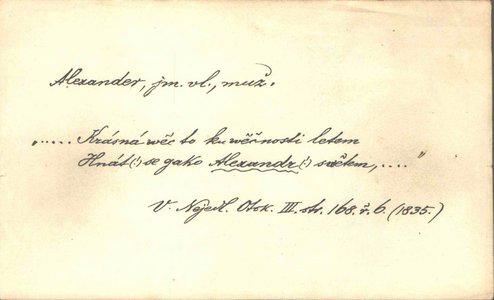 Alexander, jm. vl., muž.
„..... Krásná wěc to k wěčnosti letem
Hnát(:) se gako Alexandr(:) swětem, ...."
V. Nejedl. Otok. III. str. 168. ř. 6. (1835.)